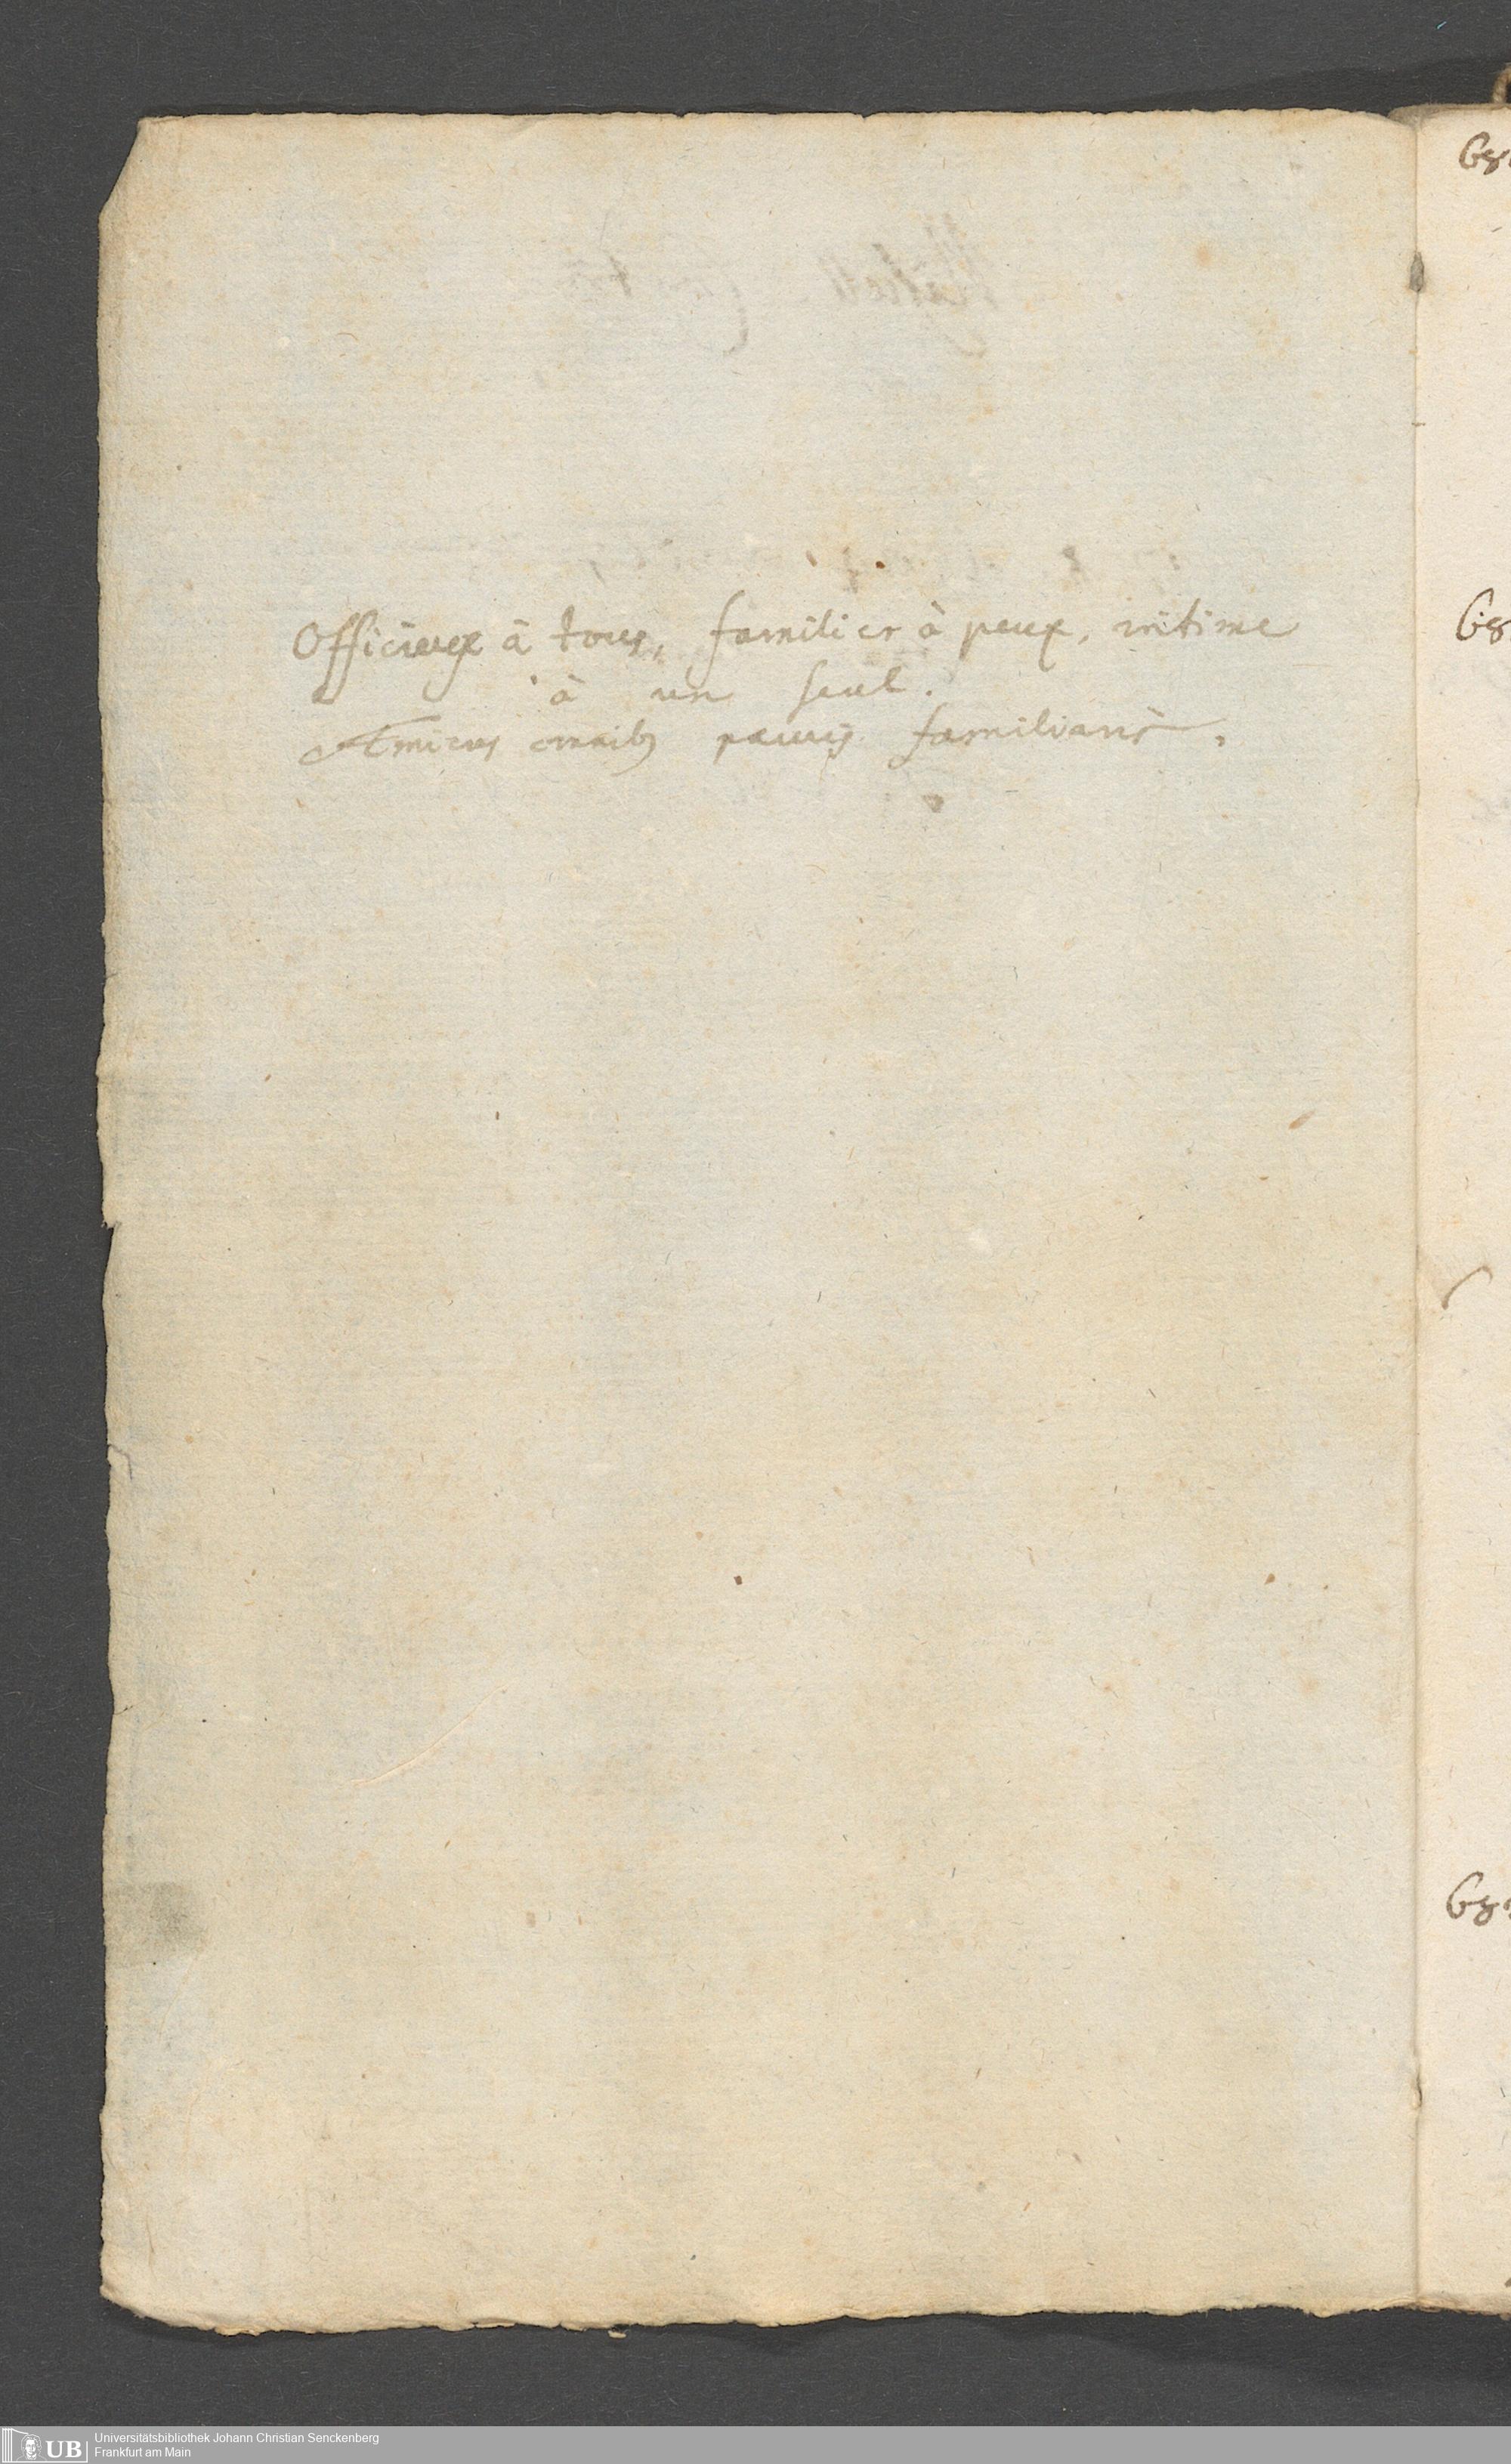 Officieux à tous, familier à peux, intime
à un seul.
Amicus omnib9 paucis familiaris.
Universitätsbibliothek Johann Christian Senckenberg
UB
Frankfurt am Main